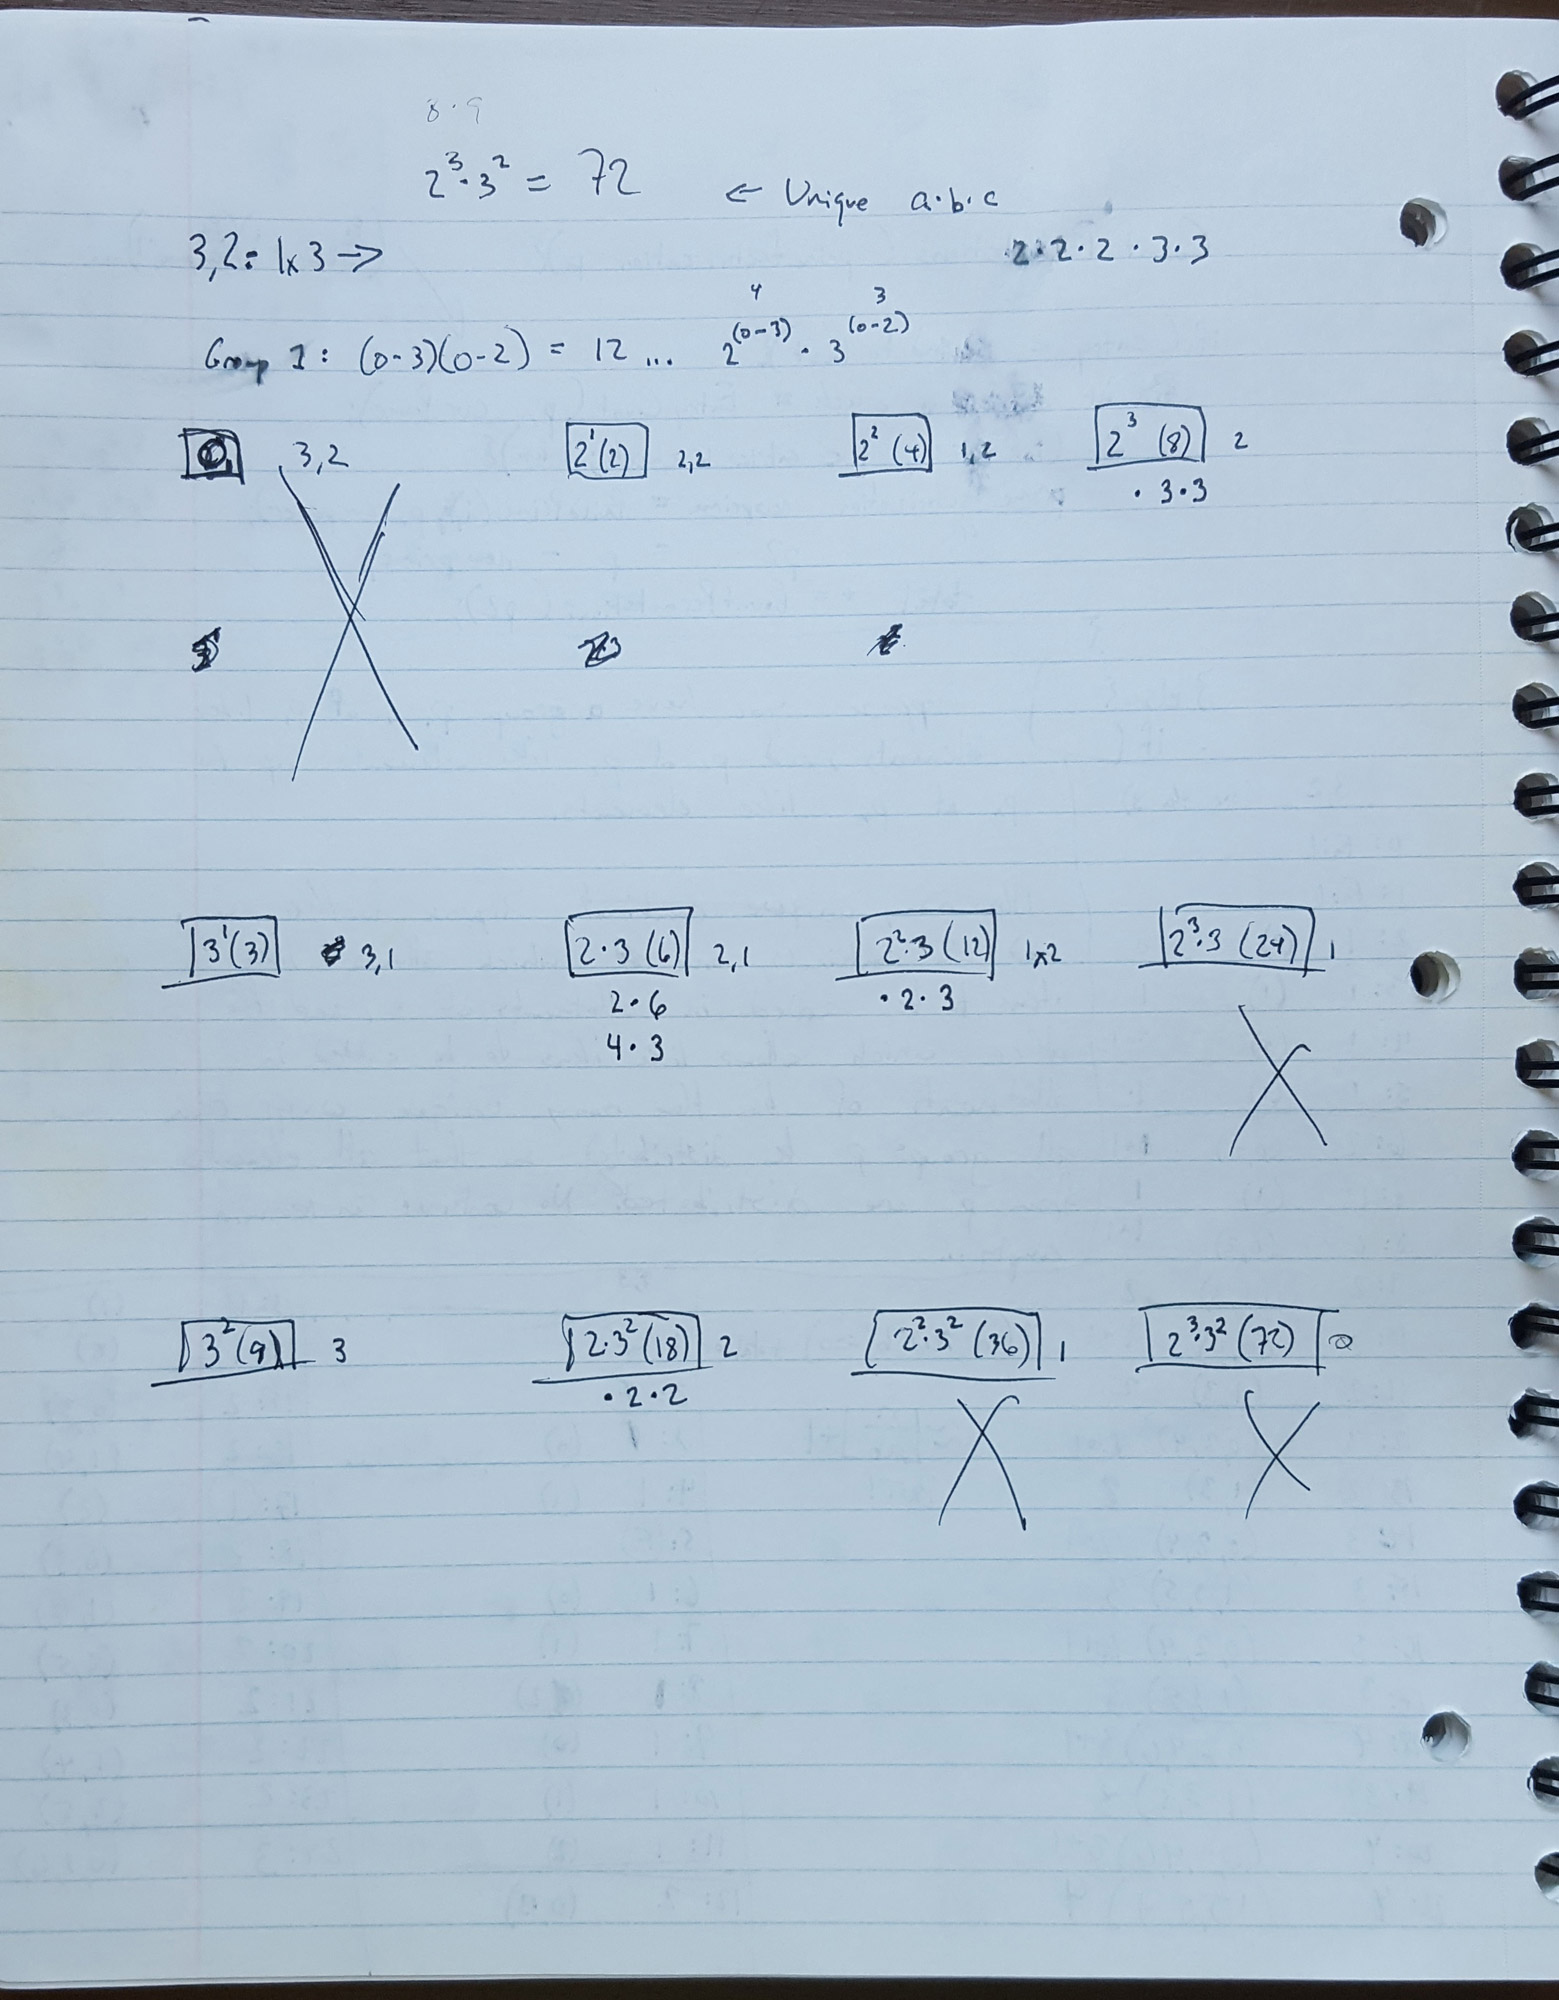 8·9
2³·3² = 72 ← Unique a·b·c
3,2: 1x3 → 2·2·2·3·3
4 3
Group 1: (0-3)(0-2) = 12 ... 2^(0-3) · 3^(0-2)
3,2 2¹(2) 2,2 2² (4) 1,2 2³ (8) 2
·3·3
3¹(3) 3,1 2·3 (6) 2,1 2²·3 (12) 1x2 2³·3 (24) 1
2·6 ·2·3
4·3
3²(9) 3 2·3²(18) 2 2²·3² (36) 1 2³·3² (72) 0
·2·2